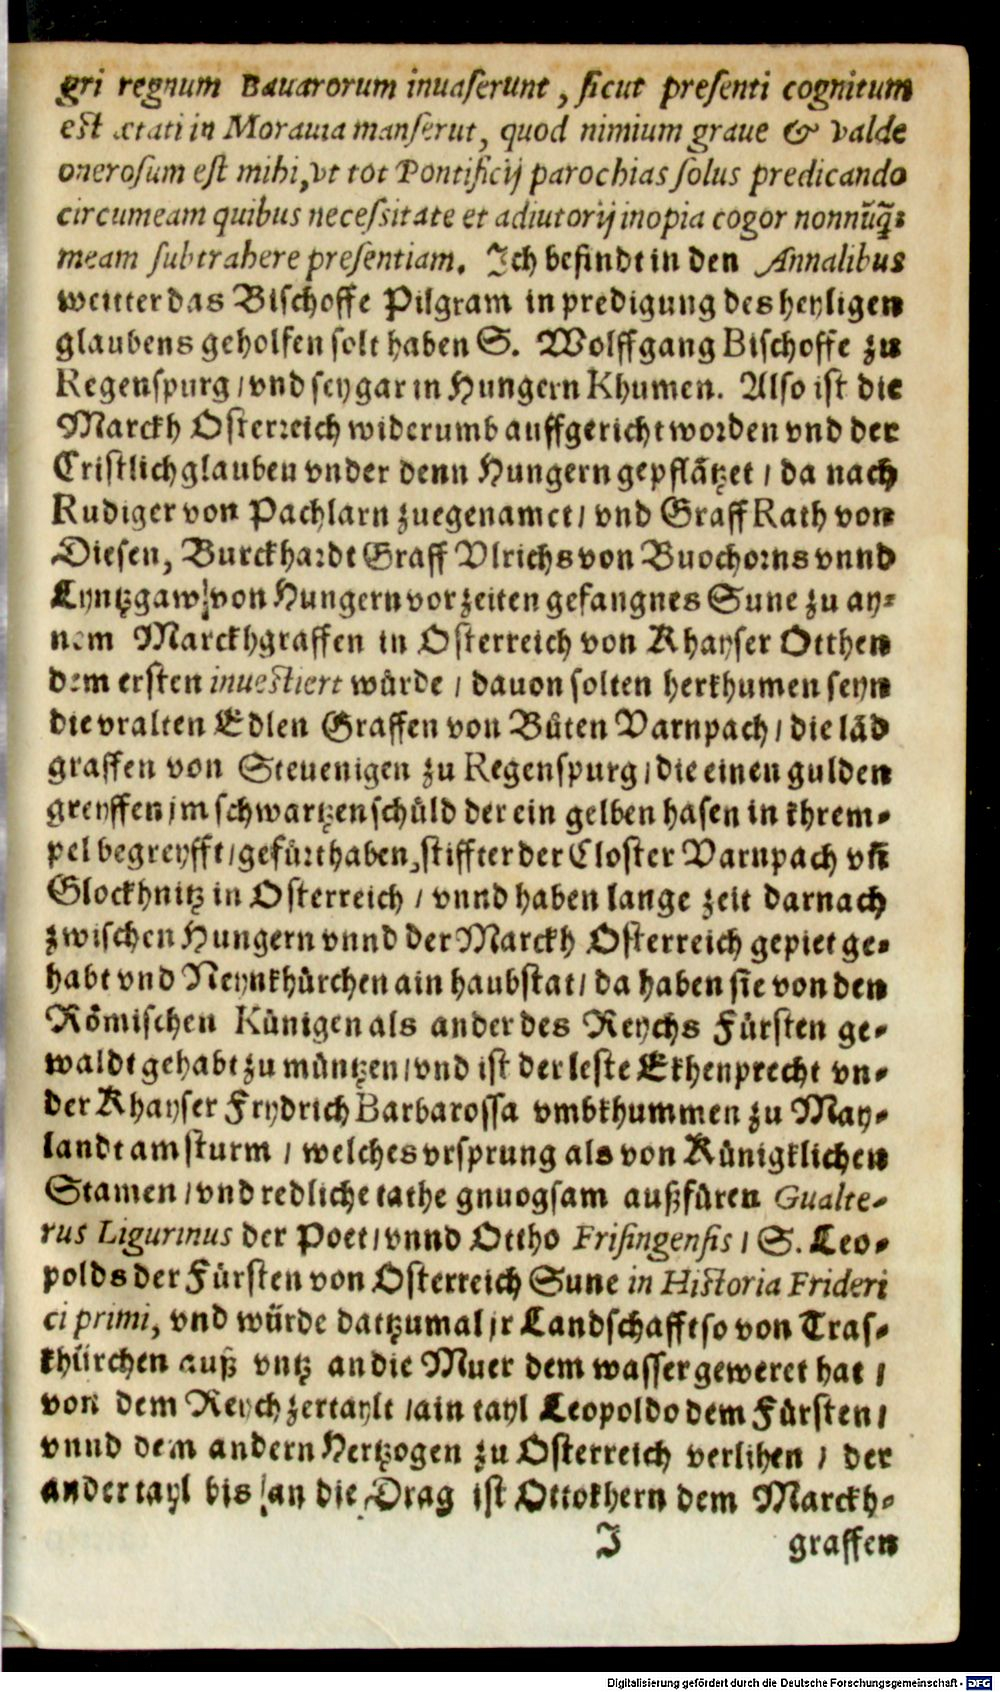 gri regnum Bauarorum inuaſerunt, ſicut preſenti cognitum
eſt ætati in Morauia manſerut, quod nimium graue & valde
oneroſum eſt mihi, vt tot Pontificij parochias ſolus predicando
circumeam quibus neceſsitate et adiutorij inopia cogor nonnũq̃;
meam ſubtrahere preſentiam. Ich befindt in den Annalibus
weitter das Biſchoffe Pilgram in predigung des heyligen
glaubens geholfen ſolt haben S. Wolffgang Biſchoffe zu
Regenſpurg / vnd ſey gar in Hungern Khumen. Alſo iſt die
Marckh Oſterreich widerumb auffgericht worden vnd der
Criſtlich glauben vnder denn Hungern gepflãtzet / da nach
Rudiger von Pachlarn zuegenamet / vnd Graff Rath von
Dieſen, Burckhardt Graff Vlrichs von Buochorns vnnd
Lyntzgaw / von Hungern vor zeiten gefangnes Sune zu ay⸗
nem Marckhgraffen in Oſterreich von Khayſer Otthen
dem erſten inueſtiert würde / dauon ſolten herkhumen ſeyn
die vralten Edlen Graffen von Bûten Varnpach / die lãd
graffen von Steuenigen zu Regenſpurg / die einen gulden
greyffen im ſchwartzen ſchüld der ein gelben haſen in khrem⸗
pel begreyfft / gefürt haben, ſtiffter der Cloſter Varnpach vñ
Glockhnitz in Oſterreich / vnnd haben lange zeit darnach
zwiſchen Hungern vnnd der Marckh Oſterreich gepiet ge⸗
habt vnd Neynkhürchen ain haubſtat / da haben ſie von den
Römiſchen Künigen als ander des Reychs Fürſten ge⸗
waldt gehabt zu müntzen / vnd iſt der leſte Ekhenprecht vn⸗
der Khayſer Frydrich Barbaroſſa vmbkhummen zu May⸗
landt am ſturm / welches vrſprung als von Künigklichen
Stamen / vnd redliche tathe gnuogſam außfüren Gualte⸗
rus Ligurinus der Poet / vnnd Ottho Friſingenſis / S. Leo⸗
polds der Fürſten von Oſterreich Sune in Hiſtoria Frideri
ci primi, vnd würde datzumal ir Landſchafft ſo von Tras⸗
khürchen auß vntz an die Muer dem waſſer geweret hat /
von dem Reych zertaylt / ain tayl Leopoldo dem Fürſten /
vnnd dem andern Hertzogen zu Oſterreich verlihen / der
ander tayl bis an die Drag iſt Ottokhern dem Marckh⸗
I graffen
Digitalisierung gefördert durch die Deutsche Forschungsgemeinschaft - DFG